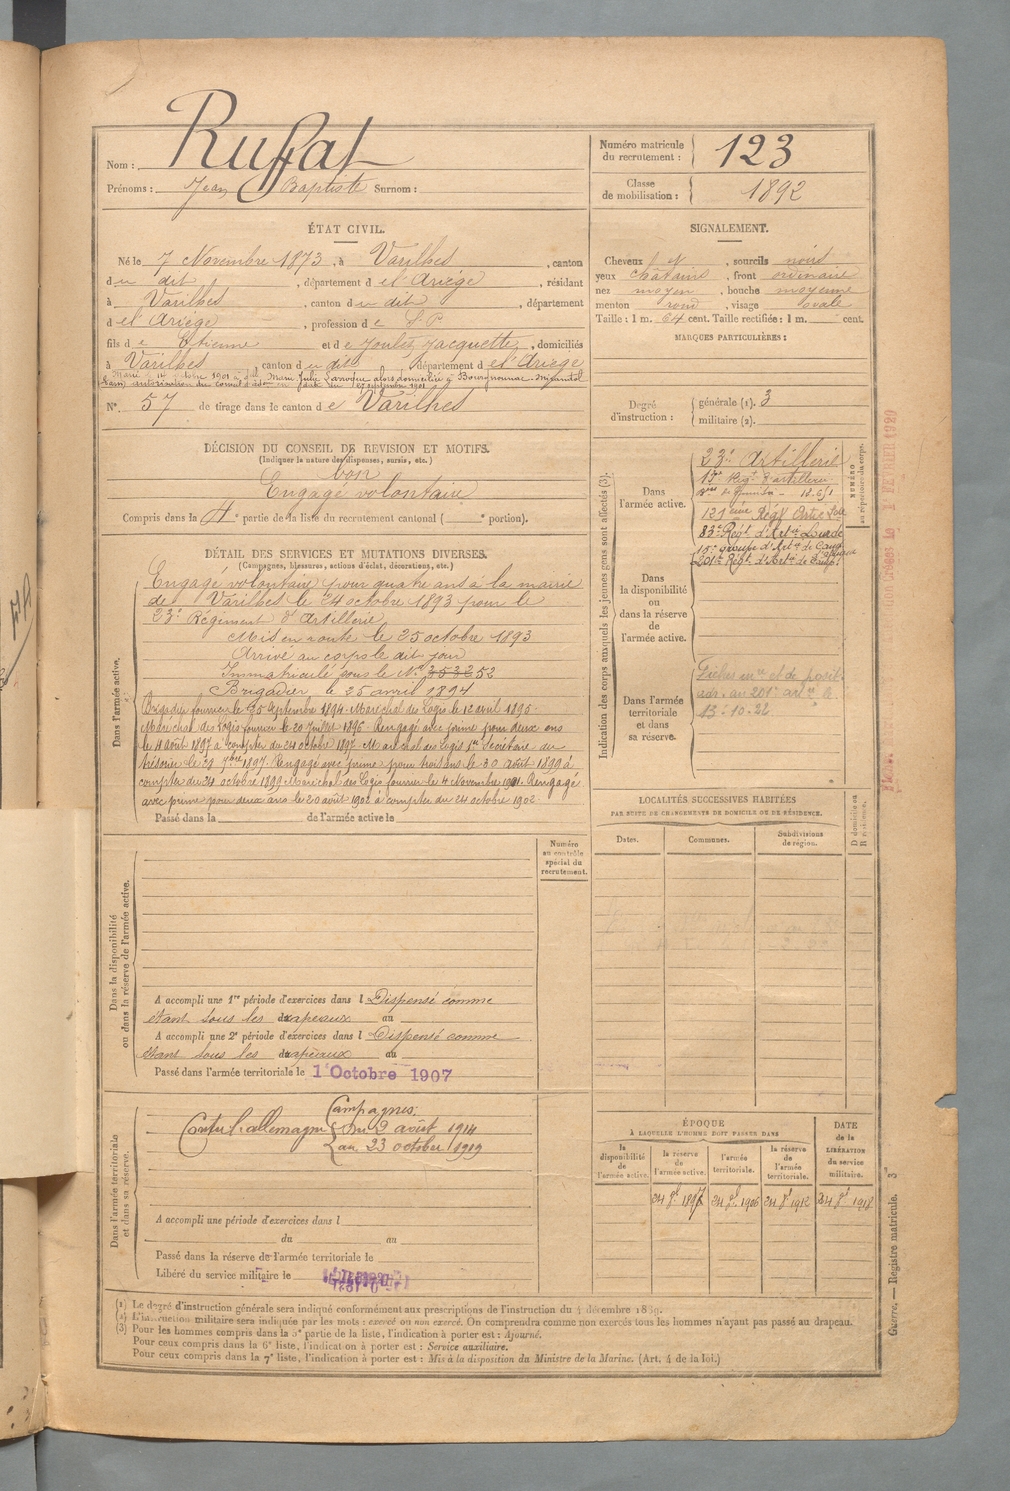 Nom : Ruffat
Prénoms : Jean Baptiste Surnom :
Numéro matricule du recrutement : 123
Classe de mobilisation : 1892
ÉTAT CIVIL.
Né le 7 Novembre 1873, à Varilhes, canton
du dit, département de l'Ariège, résidant
à Varilhes, canton du dit, département
de l'Ariège, profession de S.P.
fils de Etienne et de Joulés Jacquette, domiciliés
à Varilhes canton du dit, département de l'Ariège
N°. 57 de tirage dans le canton de Varilhes
SIGNALEMENT.
Cheveux , sourcils noirs
yeux châtains, front ordinaire
nez moyen, bouche moyenne
menton rond, visage ovale
Taille : 1 m. 64 cent. Taille rectifiée : 1 m. cent.
MARQUES PARTICULIÈRES :
Degré d'instruction :
générale (1). 3
militaire (2).
DÉCISION DU CONSEIL DE REVISION ET MOTIFS.
(Indiquer la nature des dispenses, sursis, etc.)
bon
Engagé volontaire
Compris dans la 4e partie de la liste du recrutement cantonal ( e portion).
DÉTAIL DES SERVICES ET MUTATIONS DIVERSES.
(Campagnes, blessures, actions d'éclat, décorations, etc.)
Dans l'armée active.
Engagé volontaire pour quatre ans à la mairie
de Varilhes le 24 octobre 1893 pour le
23e Régiment d'Artillerie
Mis en route le 25 octobre 1893
Arrivé au corps le dit jour
Immatriculé sous le No
Brigadier le 25 avril 1894
Brigadier fourrier le 25 septembre 1894. Maréchal des Logis le 12 avril 1895.
Maréchal des Logis fourrier le 20 Juillet 1896. Rengagé avec prime pour deux ans
le 11 août 1897 à compter du 24 octobre 1897. Maréchal des Logis 1er Secrétaire du
trésorier le 7bre 1897. Rengagé avec prime pour trois ans le 30 août 1899 à
compter du 24 octobre 1899. Maréchal des Logis fourrier le 4 Novembre 1901. Rengagé
avec prime pour deux ans le 20 août 1902 à compter du 24 octobre 1902.
Passé dans la de l'armée active le
Indication des corps auxquels les jeunes gens sont affectés (3).
NUMÉRO au répertoire du corps.
Dans l'armée active.
23e Artillerie
83e Régt d'Artie Lourde
201e Régt d'Artie de Camp.
Dans la disponibilité ou dans la réserve de l'armée active.
Dans l'armée territoriale et dans sa réserve.
13-10-22
LOCALITÉS SUCCESSIVES HABITÉES
PAR SUITE DE CHANGEMENTS DE DOMICILE OU DE RÉSIDENCE.
Dates. Communes. Subdivisions de région.
D domicile ou R résidence.
Dans la disponibilité ou dans la réserve de l'armée active.
Numéro au contrôle spécial du recrutement.
A accompli une 1re période d'exercices dans l Dispensé comme
étant sous les drapeaux au
A accompli une 2e période d'exercices dans l Dispensé comme
étant sous les drapeaux au
Passé dans l'armée territoriale le 1er Octobre 1907
Dans l'armée territoriale et dans sa réserve.
Campagnes:
Contre l'allemagne du 2 août 1914
au 23 octobre 1919
A accompli une période d'exercices dans l
du au
Passé dans la réserve de l'armée territoriale le
Libéré du service militaire le
ÉPOQUE
À LAQUELLE L'HOMME DOIT PASSER DANS
la disponibilité de l'armée active.
la réserve de l'armée active.
l'armée territoriale.
la réserve de l'armée territoriale.
DATE de la LIBÉRATION du service militaire.
24 8bre 1897 24 8bre 1906 24 8bre 1912 24 8bre 1918
(1) Le degré d'instruction générale sera indiqué conformément aux prescriptions de l'instruction du 4 décembre 1889.
(2) L'instruction militaire sera indiquée par les mots : exercé ou non exercé. On comprendra comme non exercés tous les hommes n'ayant pas passé au drapeau.
(3) Pour les hommes compris dans la 5e partie de la liste, l'indication à porter est : Ajourné.
Pour ceux compris dans la 6e liste, l'indication à porter est : Service auxiliaire.
Pour ceux compris dans la 7e liste, l'indication à porter est : Mis à la disposition du Ministre de la Marine. (Art. 4 de la loi.)
Guerre. — Registre matricule. 3